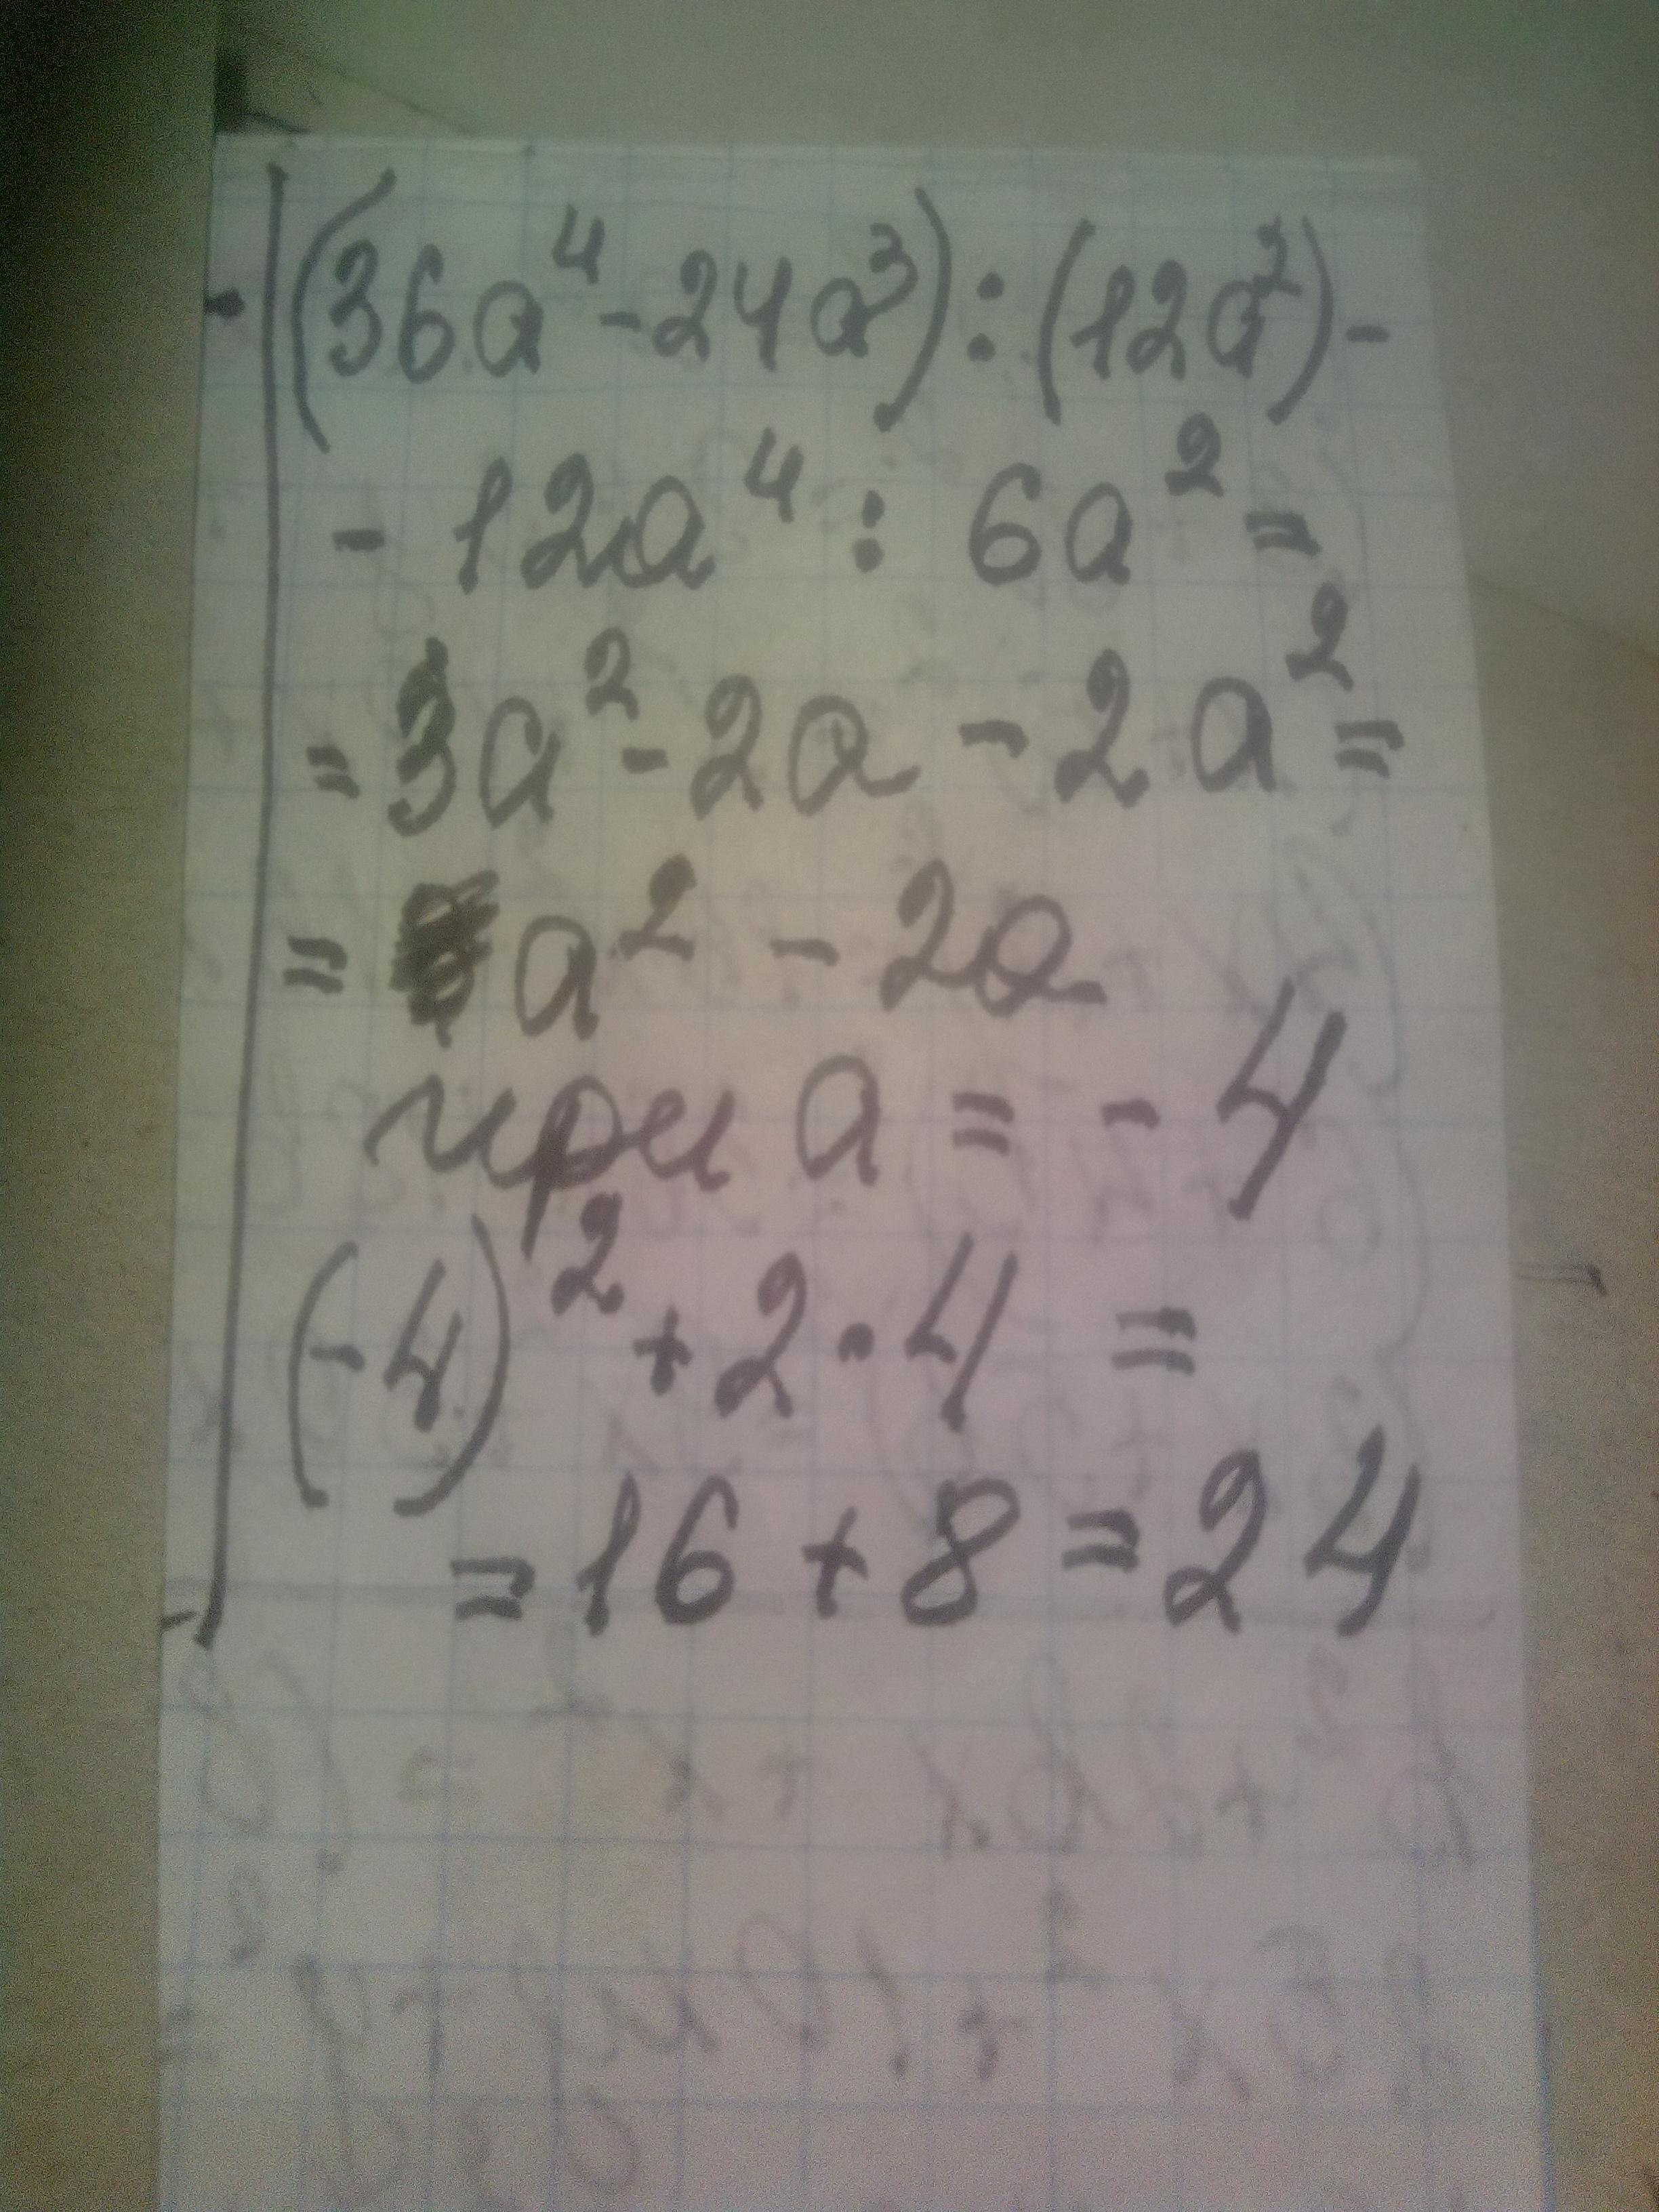 (36a⁴-24a³):(12a²)-
- 12a⁴ : 6a² =
= 3a² - 2a - 2a² =
= a² - 2a
при a = - 4
(-4)² + 2·4 =
= 16 + 8 = 24